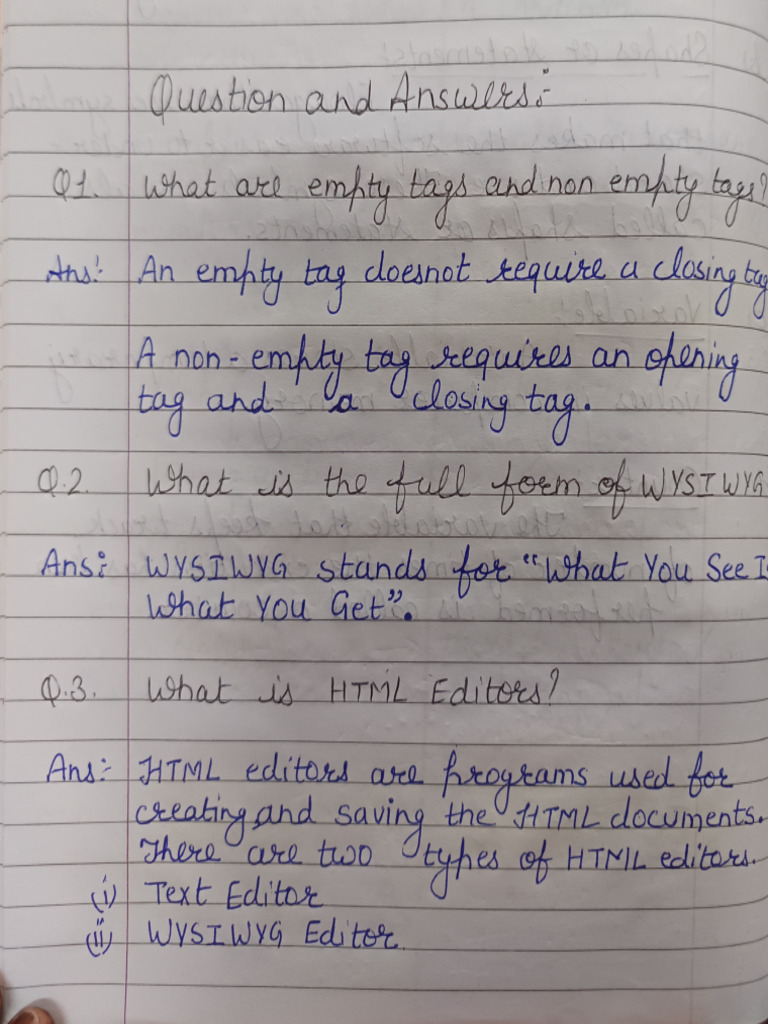 Question and Answers:-
Q1. What are empty tags and non empty tags?
Ans:- An empty tag doesnot require a closing tag
A non-empty tag requires an opening
tag and a closing tag.
Q.2. What is the full form of WYSIWYG
Ans:- WYSIWYG stands for "What You See I
What You Get".
Q.3. What is HTML Editors?
Ans:- HTML editors are programs used for
creating and saving the HTML documents.
There are two types of HTML editors.
(i) Text Editor
(ii) WYSIWYG Editor